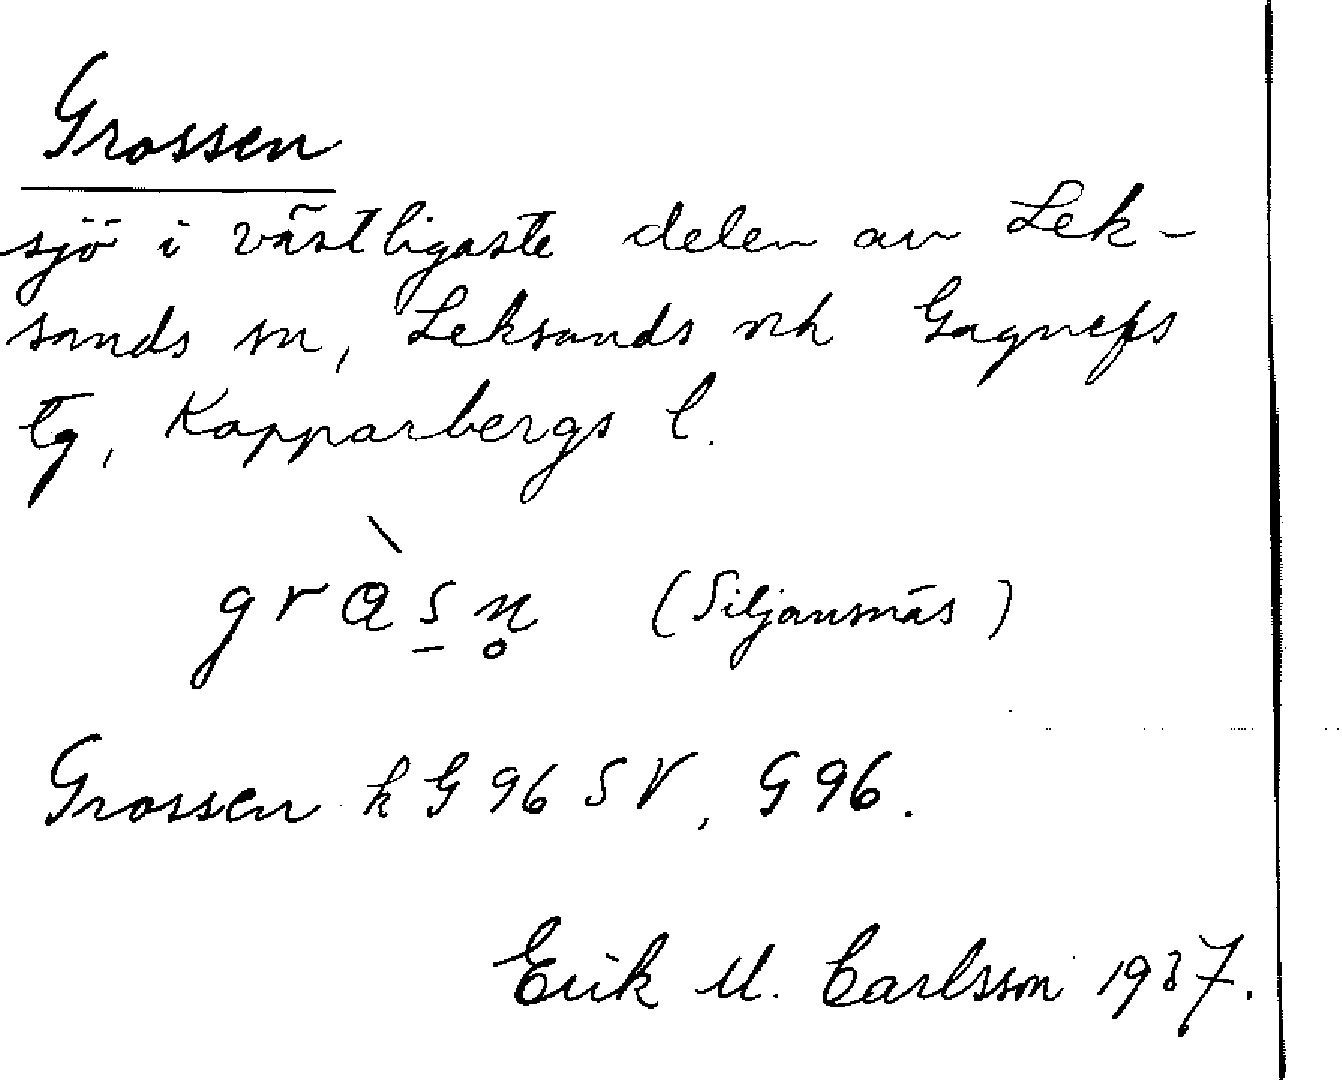 Grossen
sjö i västligaste delen av Lek-
sands sn, Leksands och Gagnefs
tg, Kopparbergs l.
gròs̠n̥ (Siljansnäs)
Grossen k G 96 SV, G 96.
Erik M. Carlsson 1937.